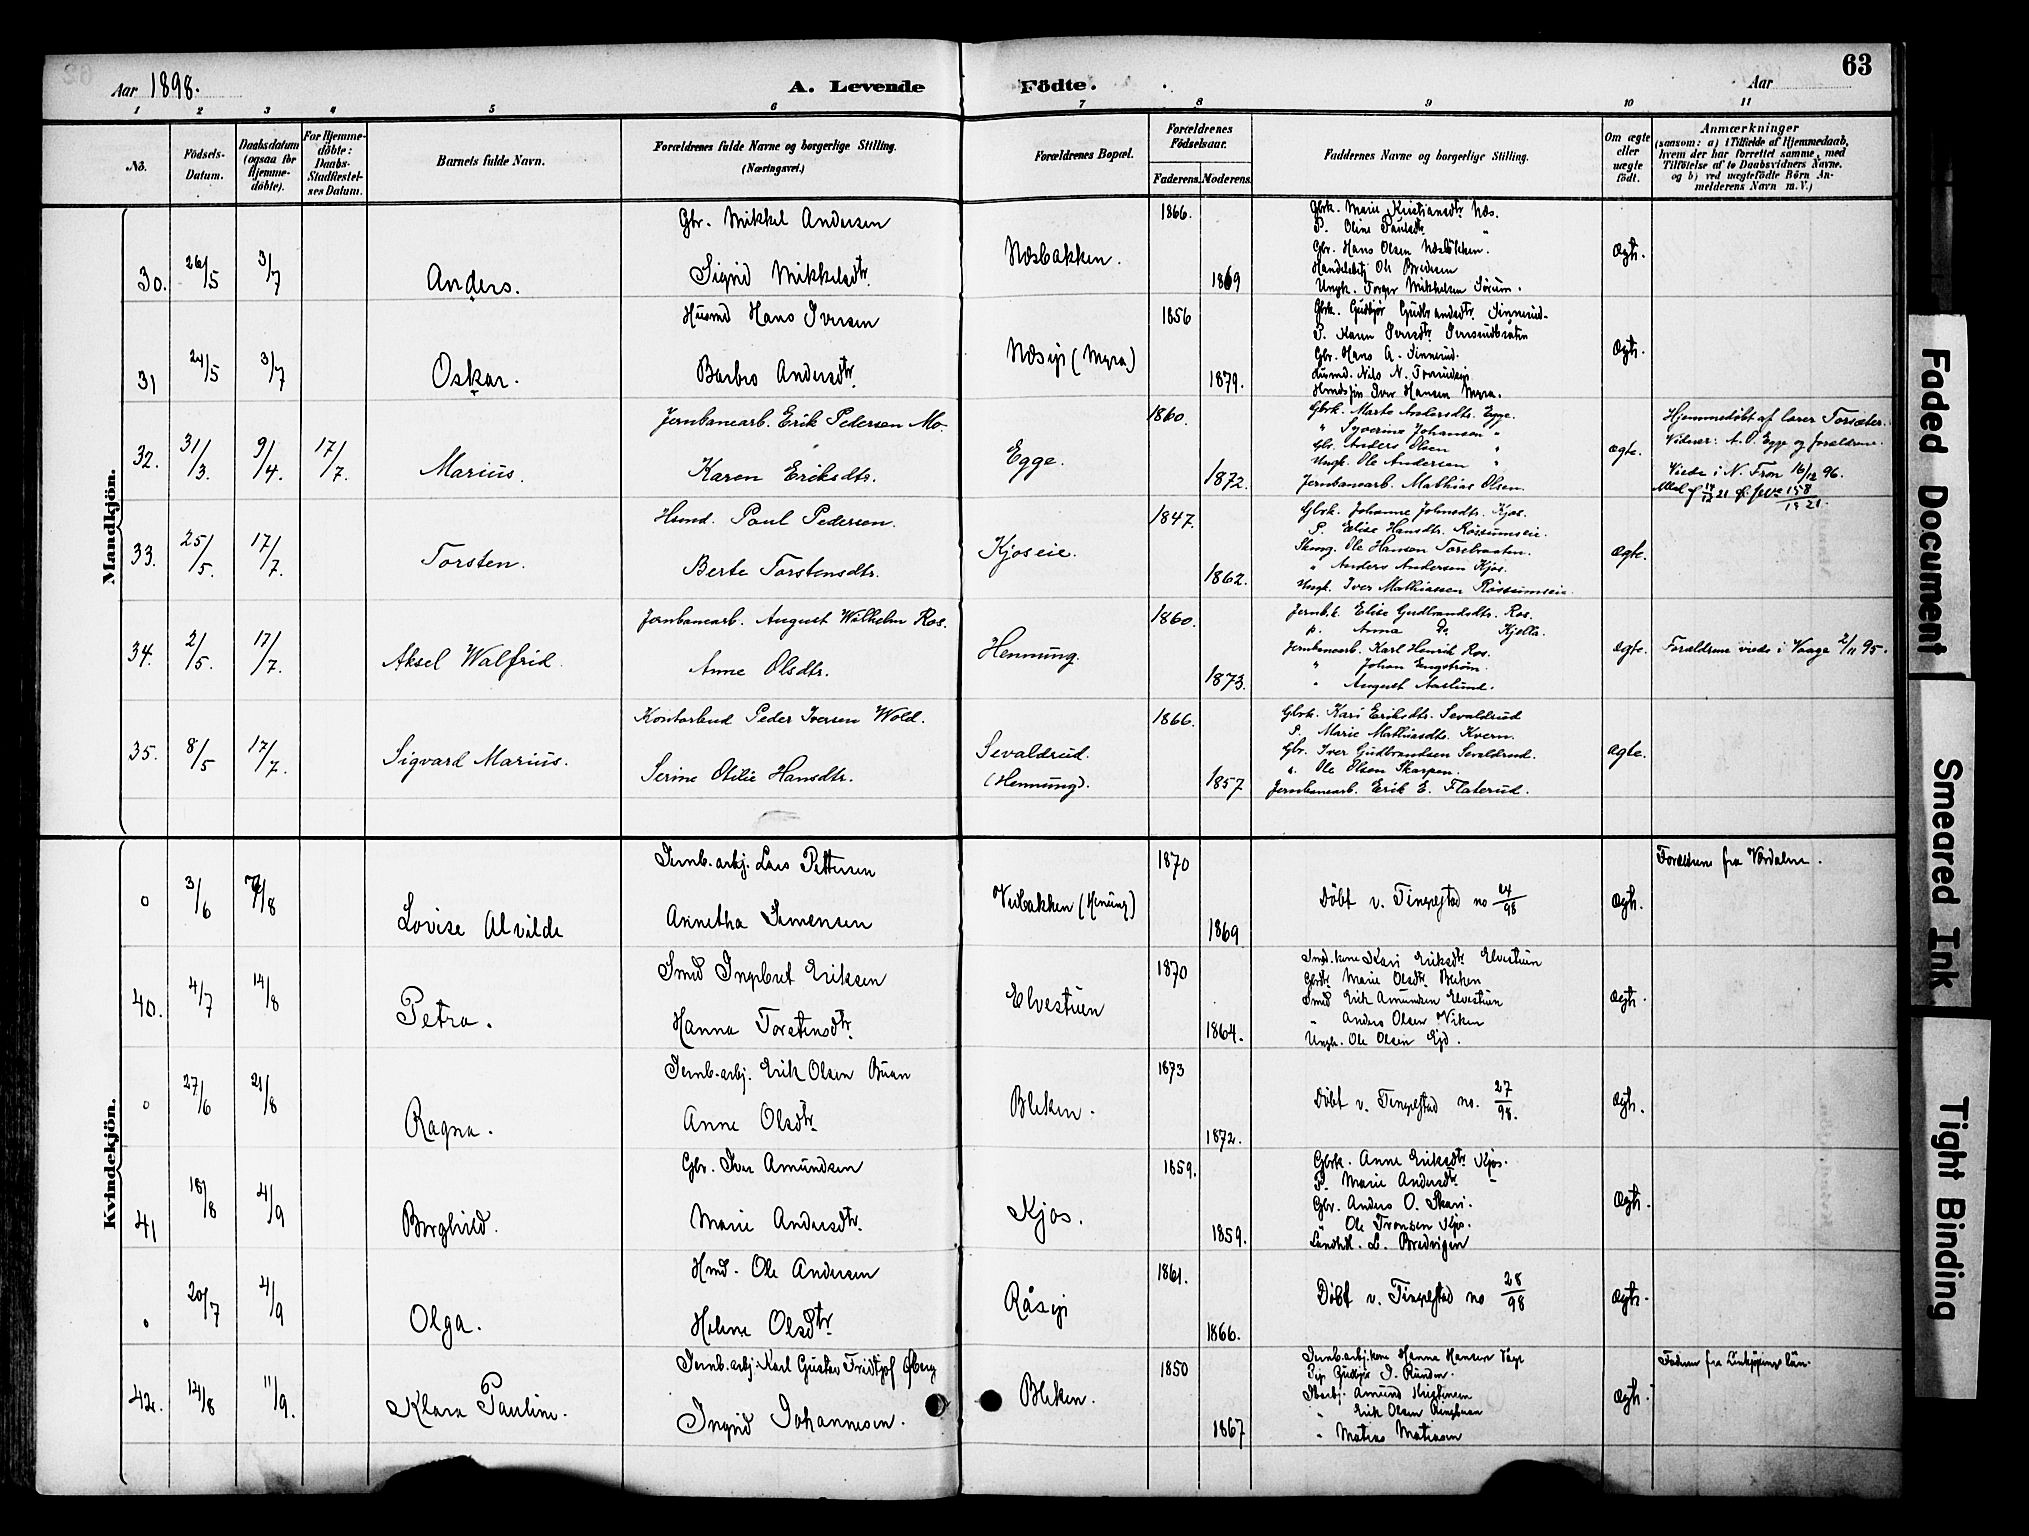 63
Aar 1898.
A. Levende Födte.
Aar
1 2 3 4 5 6 7 8 9 10 11
No.
Födsels-Datum.
Daabsdatum (ogsaa for Hjemmedöbte).
For Hjemmedöbte: Daabs-Stadfæstelses Datum.
Barnets fulde Navn.
Forældrenes fulde Navne og borgerlige Stilling. (Næringsvei.)
Forældrenes Bopæl.
Forældrenes Födselsaar.
Faderens. Moderens.
Faddernes Navne og borgerlige Stilling.
Om ægte eller uægte födt.
Anmærkninger
(saasom: a) i Tilfælde af Hjemmedaab, hvem der har forrettet samme, med Tilföielse af to Daabsvidners Navne. og b) ved uægtefödte Börn Anmelderens Navn m. V.)
Mandkjön.
30. 26/5 3/7 Anders.
Gbr. Mikkel Andersen
Sigrid Mikkelsdtr.
Næsbakken.
1866.
1869
Gbrk. Marie Kristiansdtr. Næs.
P. Oline Paulsdtr. "
Gbr. Hans Olsen
Ungk. Torger Mikkelsen Sørum.
Ægte.
31 24/5 3/7 Oskar.
Husmd Hans Iversen
Barbro Andersdtr.
Næseje (Myra)
1856
1879.
Gbrk. Gudbjør Gudbrandsdtr. Finnerud.
P. Karen Iversdtr.
Gbr. Hans A. Finnerud.
Iver Hansen Myra.
Ægte.
32. 31/3. 9/4. 17/7. Marius.
Jernbanearb. Erik Pedersen Mo.
Karen Eriksdtr.
Egge.
1860.
1872.
Gbrk. Marte Andersdtr. Egge.
" Syverine Johansen "
Gbr. Anders Olsen "
Ungk. Ole Andersen "
Jernbanearb. Mathias Olsen.
ægte.
Hjemmedøbt af lærer Torsæter.
Vidner: A. O. Egge og forældrene.
Viede i N. Fron 16/12 96.
33. 25/5. 17/7. Torsten.
Husmd. Paul Pedersen.
Berte Torstensdtr.
Kjoseie.
1847.
1862.
Gbrk. Johanne Johnsdtr. Kjos.
P. Elise Hansdtr. Røssumseie.
Skomg. Ole Hansen Torebraaten.
" Anders Andersen Kjos.
Ungk. Iver Mathiassen Røssumseie.
ægte.
34. 2/5. 17/7. Aksel Walfrid.
Jernbanearb. August Wilhelm Ros.
Anne Olsdtr.
Hennung.
1860.
1873.
Jernb.k. Elise Gudbrandsdtr. Ros.
p. Anna Do. Kjella.
Jernbanearb. Karl Henrik Ros.
" Johan Engstrøm.
" August Aaslund.
ægte.
Forældrene viede i Vaage 2/11 95.
35. 8/5 17/7. Sigvard Marius.
Kontorbud Peder Iversen Wold.
Serine Otilie Hansdtr.
Sevaldrud.
(Hennung).
1866.
1857
Gbrk. Kari Eriksdtr. Sevaldrud
P. Marie Mathiasdtr. Kvern.
Gbr. Iver Gudbrandsen Sevaldrud.
". Ole Olsen Skarpen.
Jernbanearb. Erik E. Flaterud.
ægte.
Kvindekjön.
o 3/6 7/8 Lovise Alvilde
Jernb.arbj. Lars Pettersen
Annetha Simensen
Veibakken (Henung)
1870
1869
Døbt v. Fingelstad no 24/98
Ægte.
Forældrene fra Værdalen.
40. 4/7 14/8 Petra.
Smed Ingebret Eriksen
Hanna Torstensdtr.
Elvestuen
1870
1864.
Smed.kone Kari Eriksdtr. Elvestuen
Gbdtr. Marie Olsdtr. Bleken
Smed Erik Amundsen Elvestuen
" Anders Olsen Viken
Ungk. Ole Olsen Ejd.
Ægte.
o 27/6 21/8 Ragna.
Jernb.arbj. Erik Olsen Buan
Anne Olsdtr.
Bleken.
1873
1872.
Døbt v. Fingelstad no. 27/98.
Ægte.
41 18/8 4/9 Borghild.
Gbr. Iver Amundsen
Marie Andersdtr.
Kjos.
1859.
1859.
Gbrk. Anne Eriksdtr. Kjos.
P. Marie Andersdtr. "
Gbr. Anders O. Skari.
" Ole Tronsen Kjos.
Landh. L. Bredvigen
Ægte.
o 20/7 4/9 Olga.
Husmd. Ole Andersen
Helene Olsdtr.
Råseje
1861.
1866.
Døbt v. Fingelstad no 28/98
Ægte.
42. 14/8 11/9. Klara Pauline.
Jernb.arbj. Karl Gustav Fridtjof Øberg
Ingrid Johannesen.
Bleken.
1850
1867
Jernb.arbj.kone Hanna Hansen
Amund Kristensen
" Erik Olsen Ringbuan
" Matias Matiasen
Ægte.
Faderen fra Linkjøpings län.
Faded Document
Smeared Ink
Tight Binding